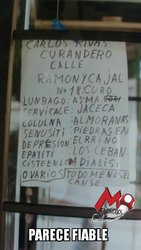 CARLOS RIVAS
CURANDERO
CALLE
RAMONYCAJAL
Nº18CURO
LUNBAGO: ASMA
CERVICALE: JACECA
COLULNA: ALMORANAS
SENUSITI PIEDRAS EN
DEPRESION: EL RRINO
EPATITI LOS CEBAN
CISTEENLO DIALIS
OVARIOS TODO MENOS E
CANSE
PARECE FIABLE